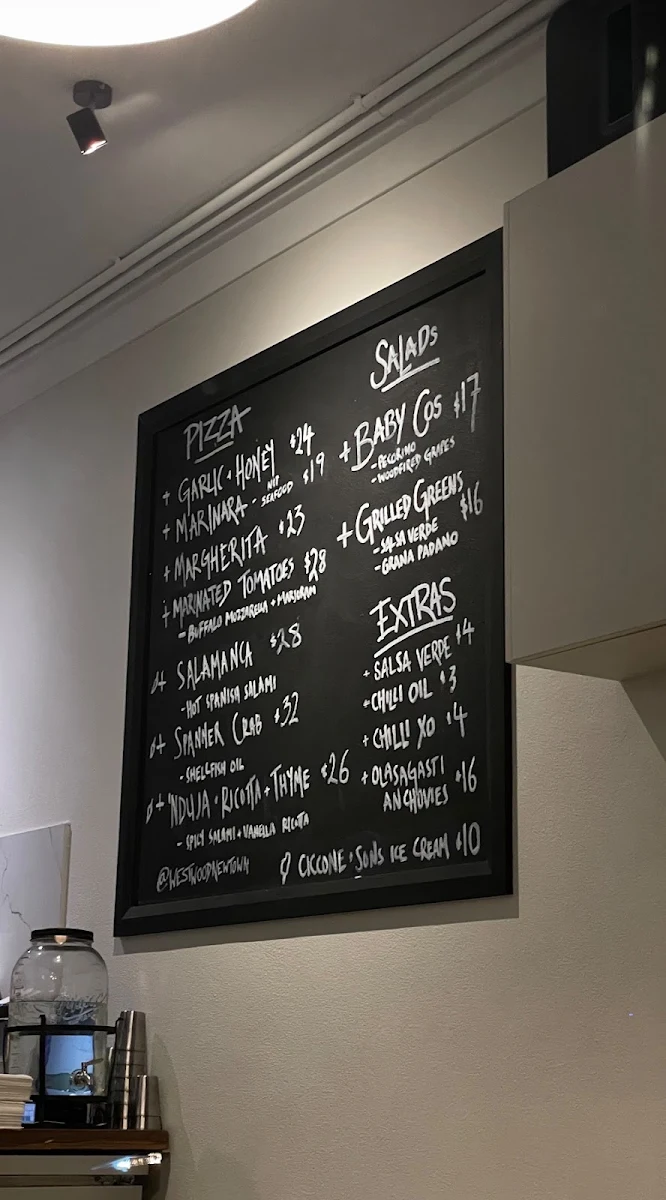 PIZZA
+ GARLIC + HONEY $24
+ MARINARA - NIP SEAFOOD $19
+ MARGHERITA $23
+ MARINATED TOMATOES $28
- BUFFALO MOZZARELLA + MARJORAM
+ SALAMANCA $28
- HOT SPANISH SALAMI
+ SPANNER CRAB $32
- SHELLFISH OIL
+ 'NDUJA + RICOTTA + THYME $26
- SPICY SALAMI + VANELLA RICOTTA
@WESTWOODNEWTOWN
SALADS
+ BABY COS $17
- PECORINO
- WOODFIRED GRAPES
+ GRILLED GREENS $16
- SALSA VERDE
- GRANA PADANO
EXTRAS
+ SALSA VERDE $4
+ CHILLI OIL $3
+ CHILLI XO $4
+ OLASAGASTI
ANCHOVIES $16
CICCONE + SONS ICE CREAM $10